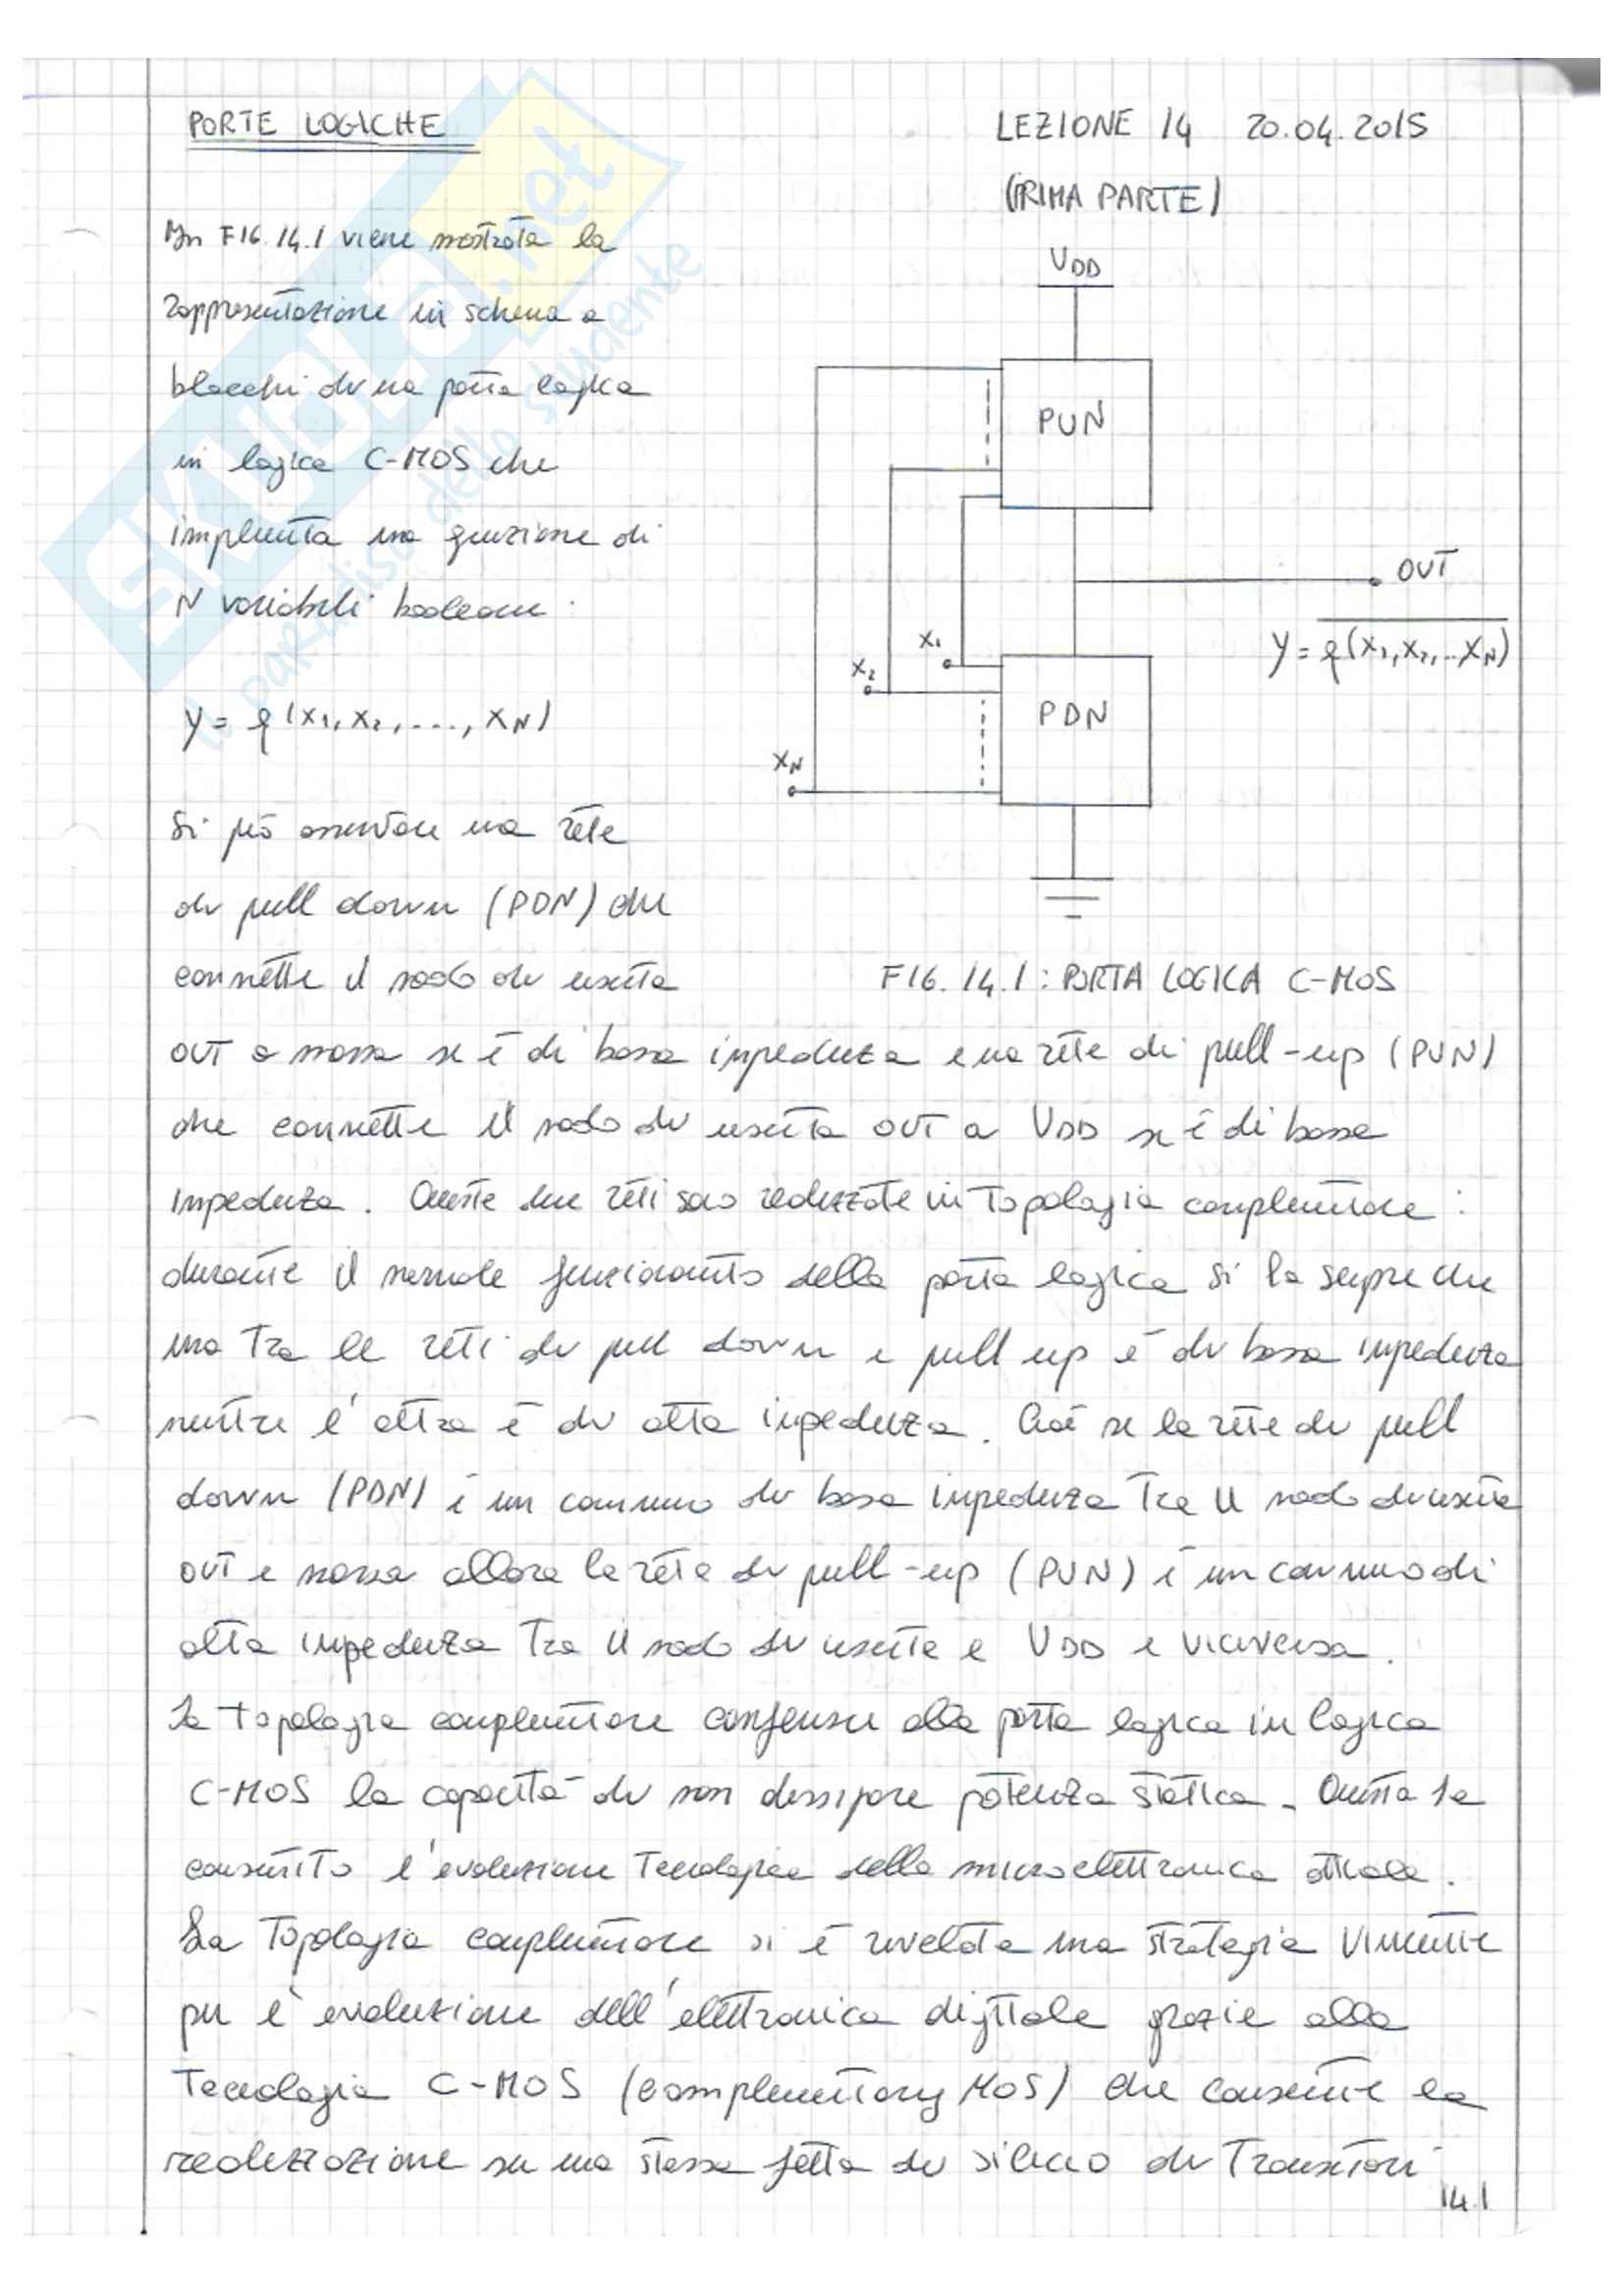 PORTE LOGICHE
LEZIONE 14 20.04.2015
(PRIMA PARTE)
In FIG. 14.1 viene mostrata la
rappresentazione in schema a
blocchi di una porta logica
in logica C-MOS che
implementa una funzione di
N variabili booleane:
y = f(x1, x2, ..., xN)
VDD
PUN
OUT
y = f(x1, x2, .. xN)
x1
x2
PDN
xN
Si può osservare una rete
di pull down (PDN) che
connette il nodo di uscita
FIG. 14.1: PORTA LOGICA C-MOS
OUT a massa se è di bassa impedenza e una rete di pull-up (PUN)
che connette il nodo di uscita OUT a VDD se è di bassa
impedenza. Queste due reti sono realizzate in topologia complementare:
durante il normale funzionamento della porta logica si ha sempre che
una tra le reti di pull down e pull up è di bassa impedenza
mentre l'altra è di alta impedenza. Cioè se la rete di pull
down (PDN) è un cammino di bassa impedenza tra il nodo di uscita
OUT e massa allora la rete di pull-up (PUN) è un cammino di
alta impedenza tra il nodo di uscita e VDD e viceversa.
La topologia complementare conferisce alla porta logica in logica
C-MOS la capacità di non dissipare potenza statica. Questo ha
consentito l'evoluzione tecnologica della microelettronica attuale.
La topologia complementare si è rivelata una strategia vincente
per l'evoluzione dell'elettronica digitale grazie alla
tecnologia C-MOS (complementary MOS) che consente la
realizzazione su una stessa fetta di silicio di transistori
14.1
SKUOLA.net
il paradiso dello studente